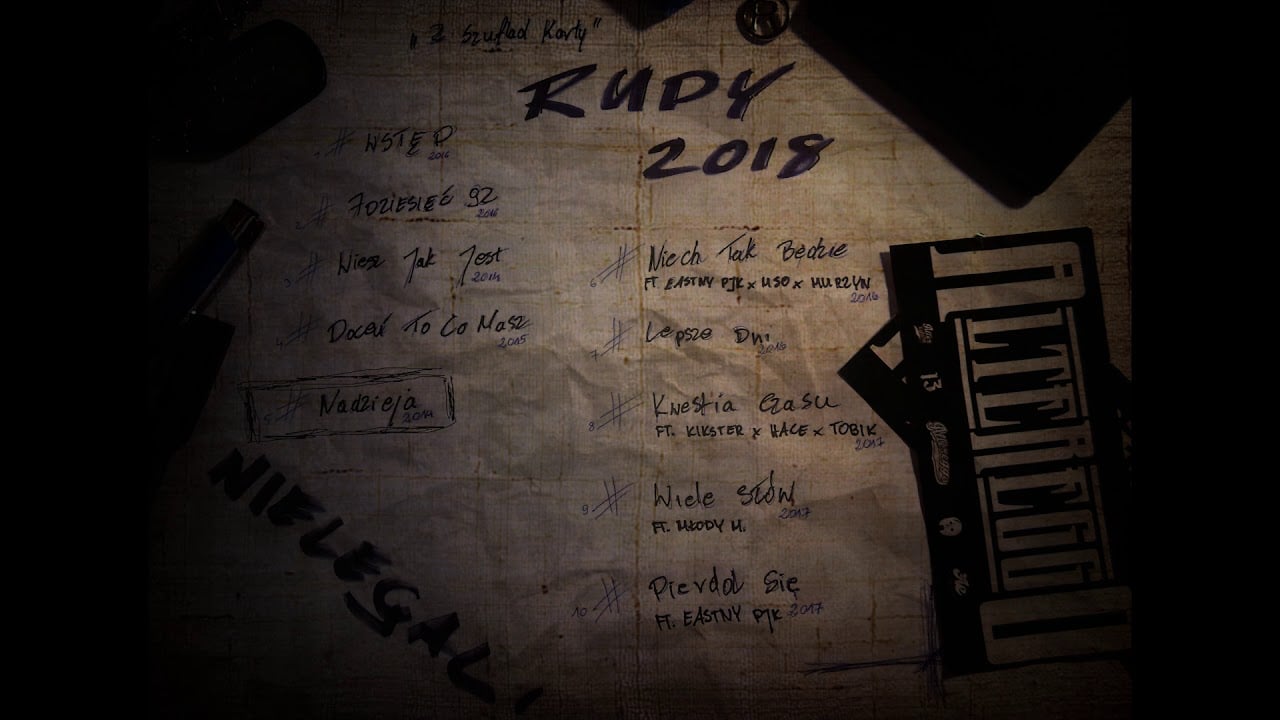 „Z Szuflad Karty”
RUDY
2018
1 # WSTĘP 2016
2 # 7DZIESIĘĆ 92 2016
3 # Wiesz Jak Jest 2014
4 # Doceń To Co Masz 2015
5 # Nadzieja 2014
6 # Niech Tak Będzie
FT EASTNY PJK x USO x MURZYN
2016
7 # Lepsze Dni 2016
8 # Kwestia Czasu
FT. KIKSTER x HACE x TOBIK
2017
9 # Wiele Słów 2017
FT. MŁODY M.
10 # Pierdol Się
FT. EASTNY PJK 2017
NIELEGAL
ALTEREGO
13